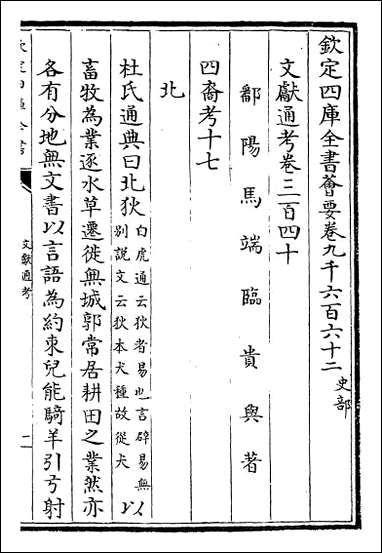 欽定四庫全書薈要卷九千六百六十二 史部
文獻通考卷三百四十
鄱陽馬端臨貴與著
四裔考十七
北
杜氏通典曰北狄白虎通云狄者易也言辟易無別說文云狄本犬種故從犬以
畜牧為業逐水草遷徙無城郭常居耕田之業然亦
各有分地無文書以言語為約束兒能騎羊引弓射
文獻通考